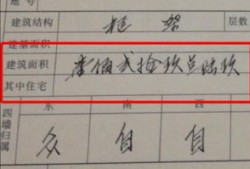 建筑结构 框架
建基面积
建筑面积 壹佰贰拾玖点陆玖
其中住宅
东 南 西
四墙归属 众 自 自